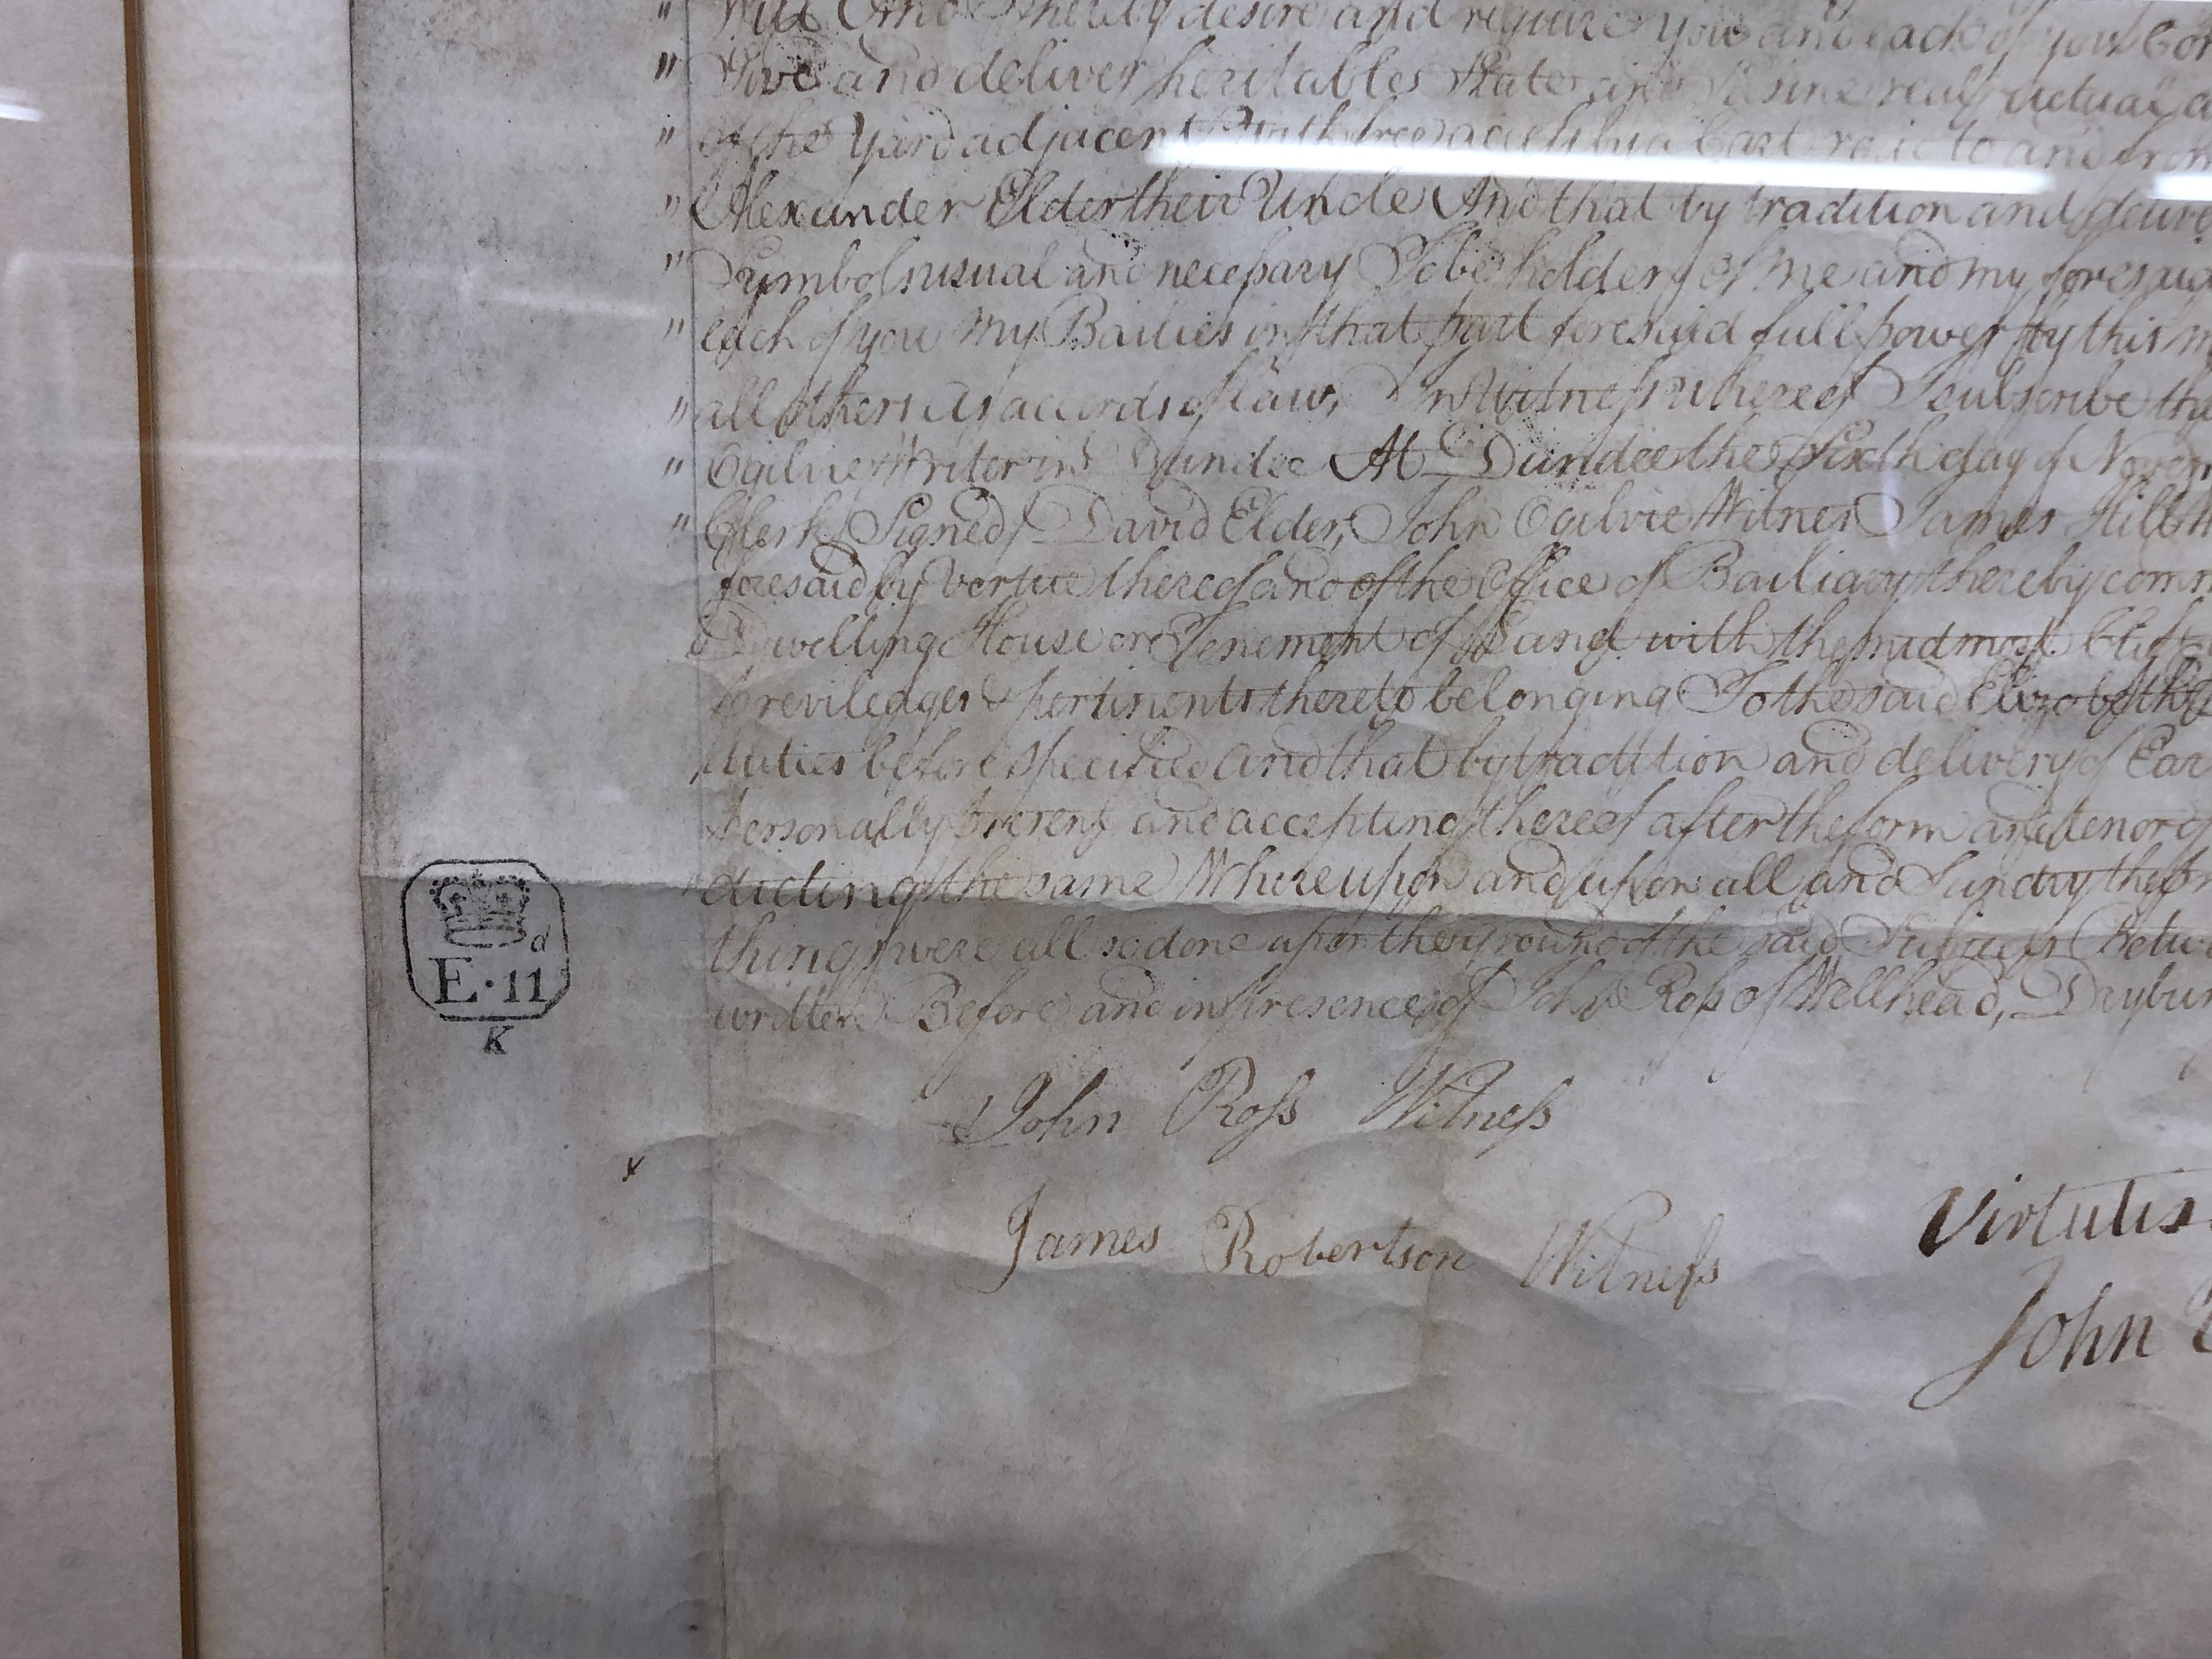 " Will And I hereby desire and require you and each of you
" Give and deliver heritable State and Seisine real actual
" of the Yard adjacent with free access by a Cart to and from
" Alexander Elder their Uncle And that by tradition and
" Symbols usual and necessary To be holden of Me and my
" each of you My Bailies in that part foresaid full power by this
" all others as accords of law, In Witness whereof I subscribe
" Ogilvie Writer in Dundee At Dundee the Sixth day of
" Clerk (Signed) David Elder, John Ogilvie Witnes James Hill
foresaid by vertue thereof and of the Office of Bailiary thereby
Dwelling House or Tenement of Land with the midmost
previledges & pertinents thereto belonging To the said Elizabeth
duties before specified and that by tradition and delivery of
personally present and accepting thereof after the form and tenor of
dicting the same Whereupon and upon all and Sundry the
things were all so done upon the ground of the said Subjects
written Before and in presence of John Ross of Wellhead,
E·11
d
K
John Ross Witness
James Robertson Witness
x
Virtutis
John